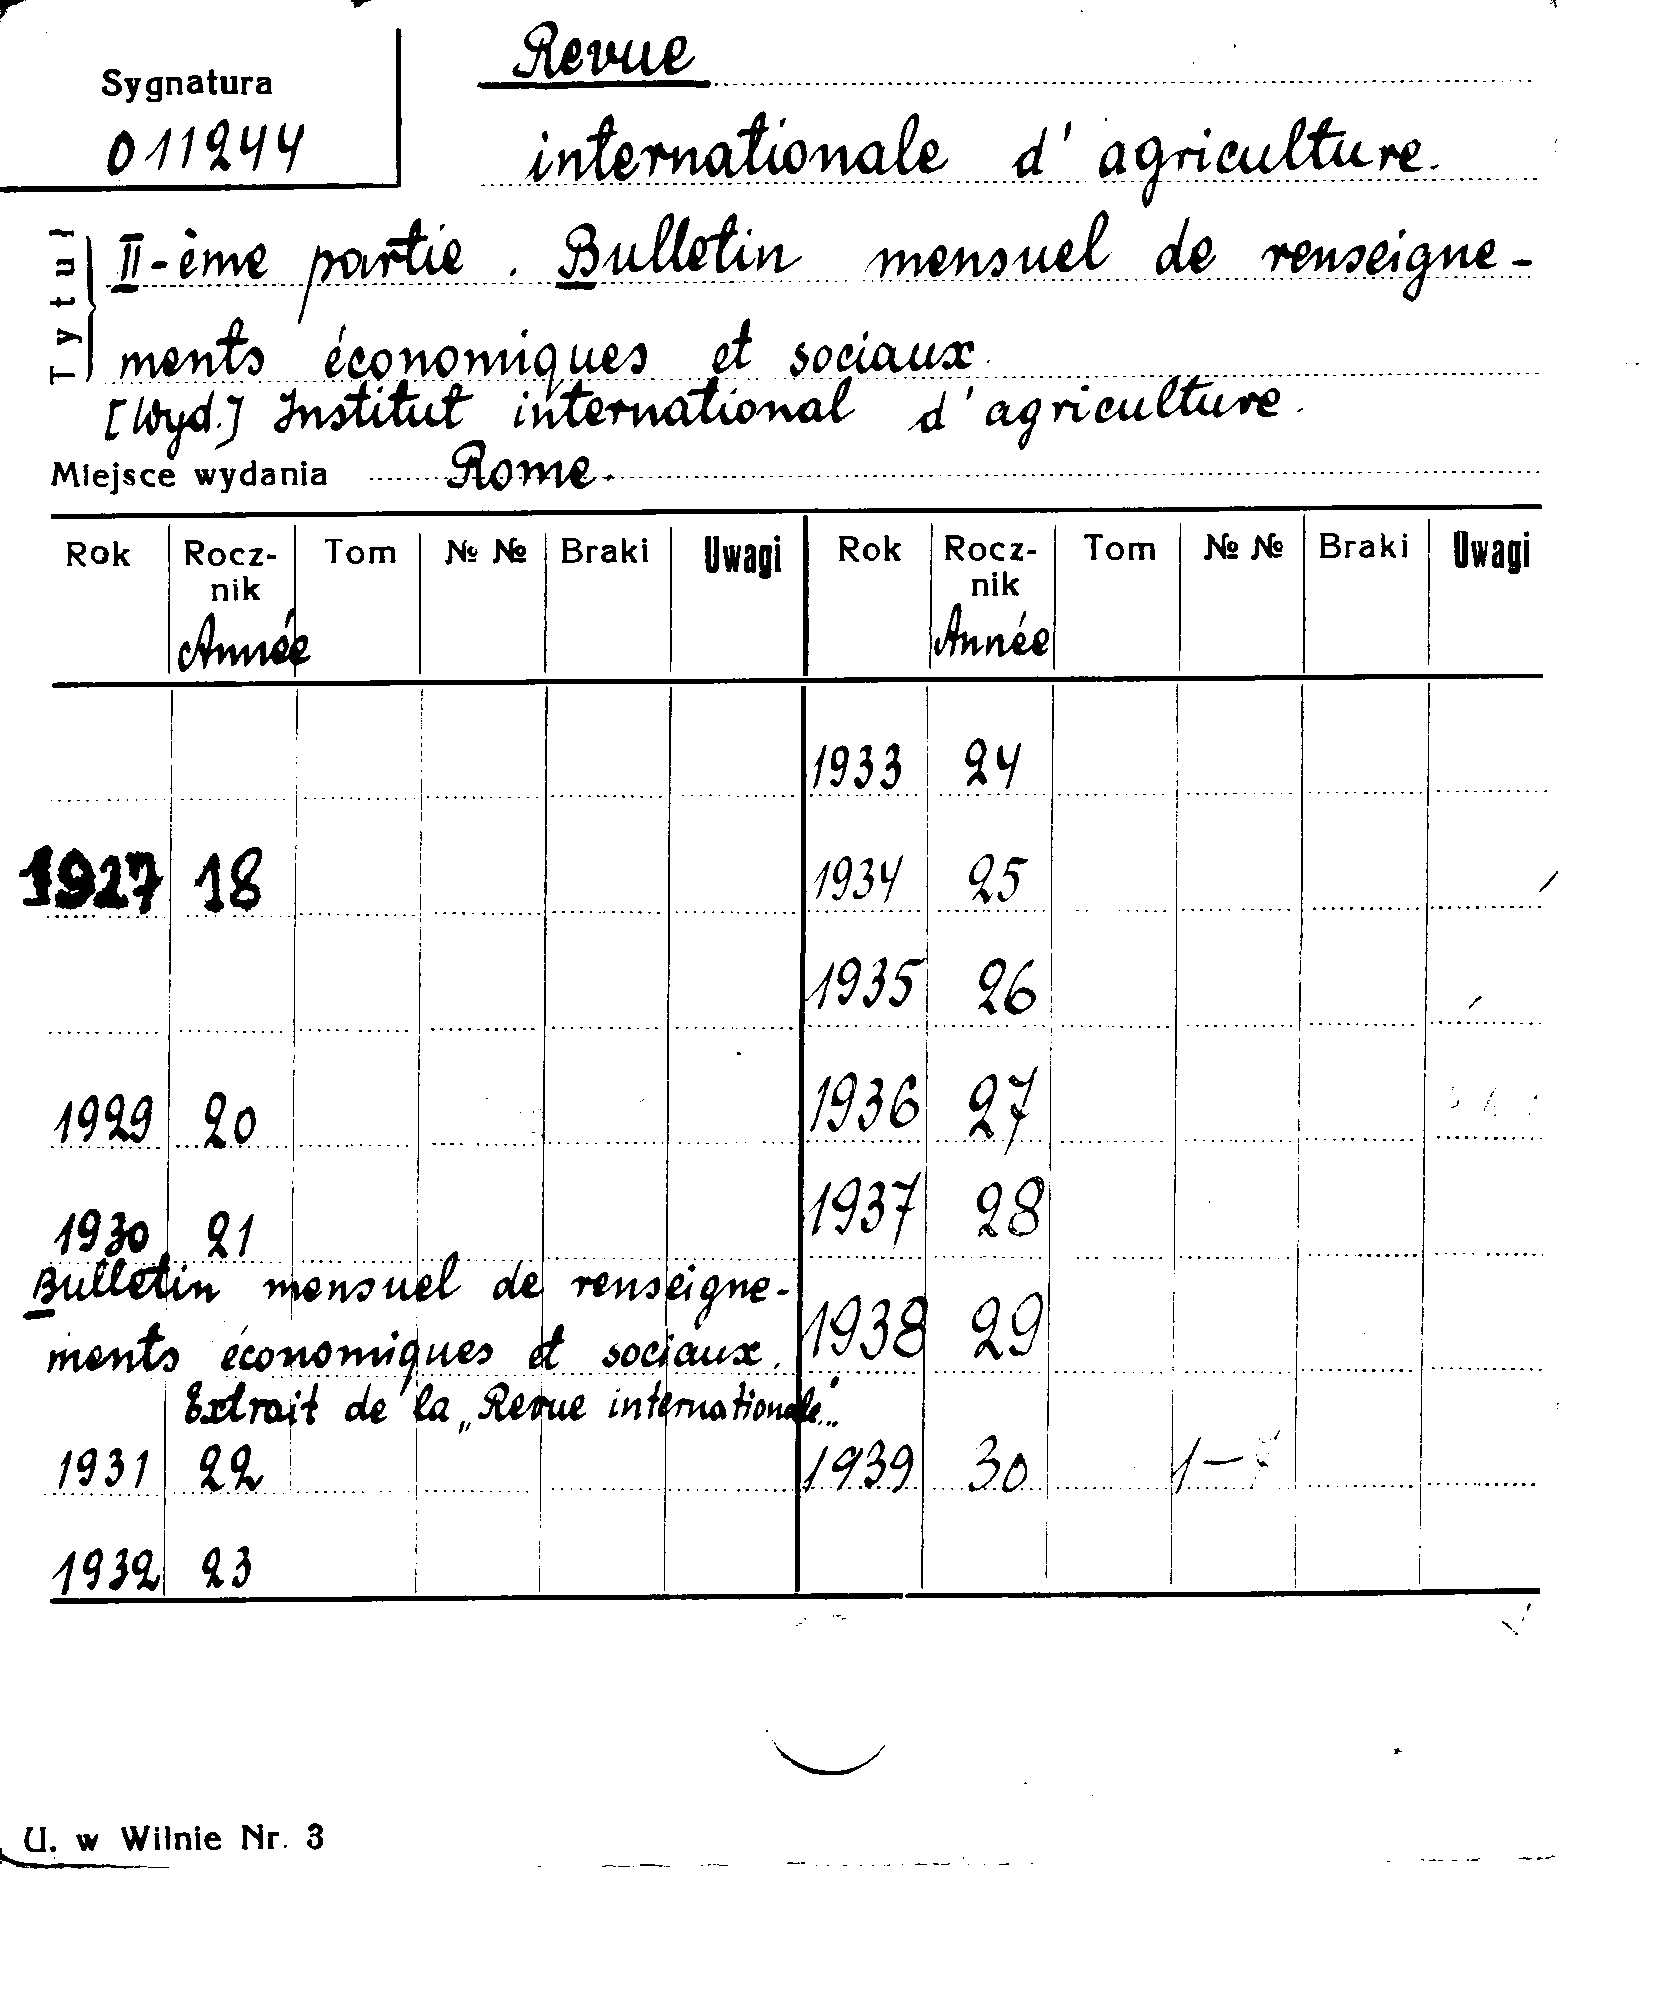 Sygnatura
011244
Revue
internationale d'agriculture.
Tytuł
II-ème partie. Bulletin mensuel de renseigne-
ments économiques et sociaux.
[Wyd.] Institut international d'agriculture.
Miejsce wydania Rome.
Rok Rocz-nik Année Tom № № Braki Uwagi Rok Rocz-nik Année Tom № № Braki Uwagi
1933 24
1927 18 1934 25
1935 26
1929 20 1936 27
1930 21 1937 28
Bulletin mensuel de renseigne-
ments économiques et sociaux. 1938 29
Extrait de la „Revue internationale..."
1931 22 1939 30 1-
1932 23
U. w Wilnie Nr. 3